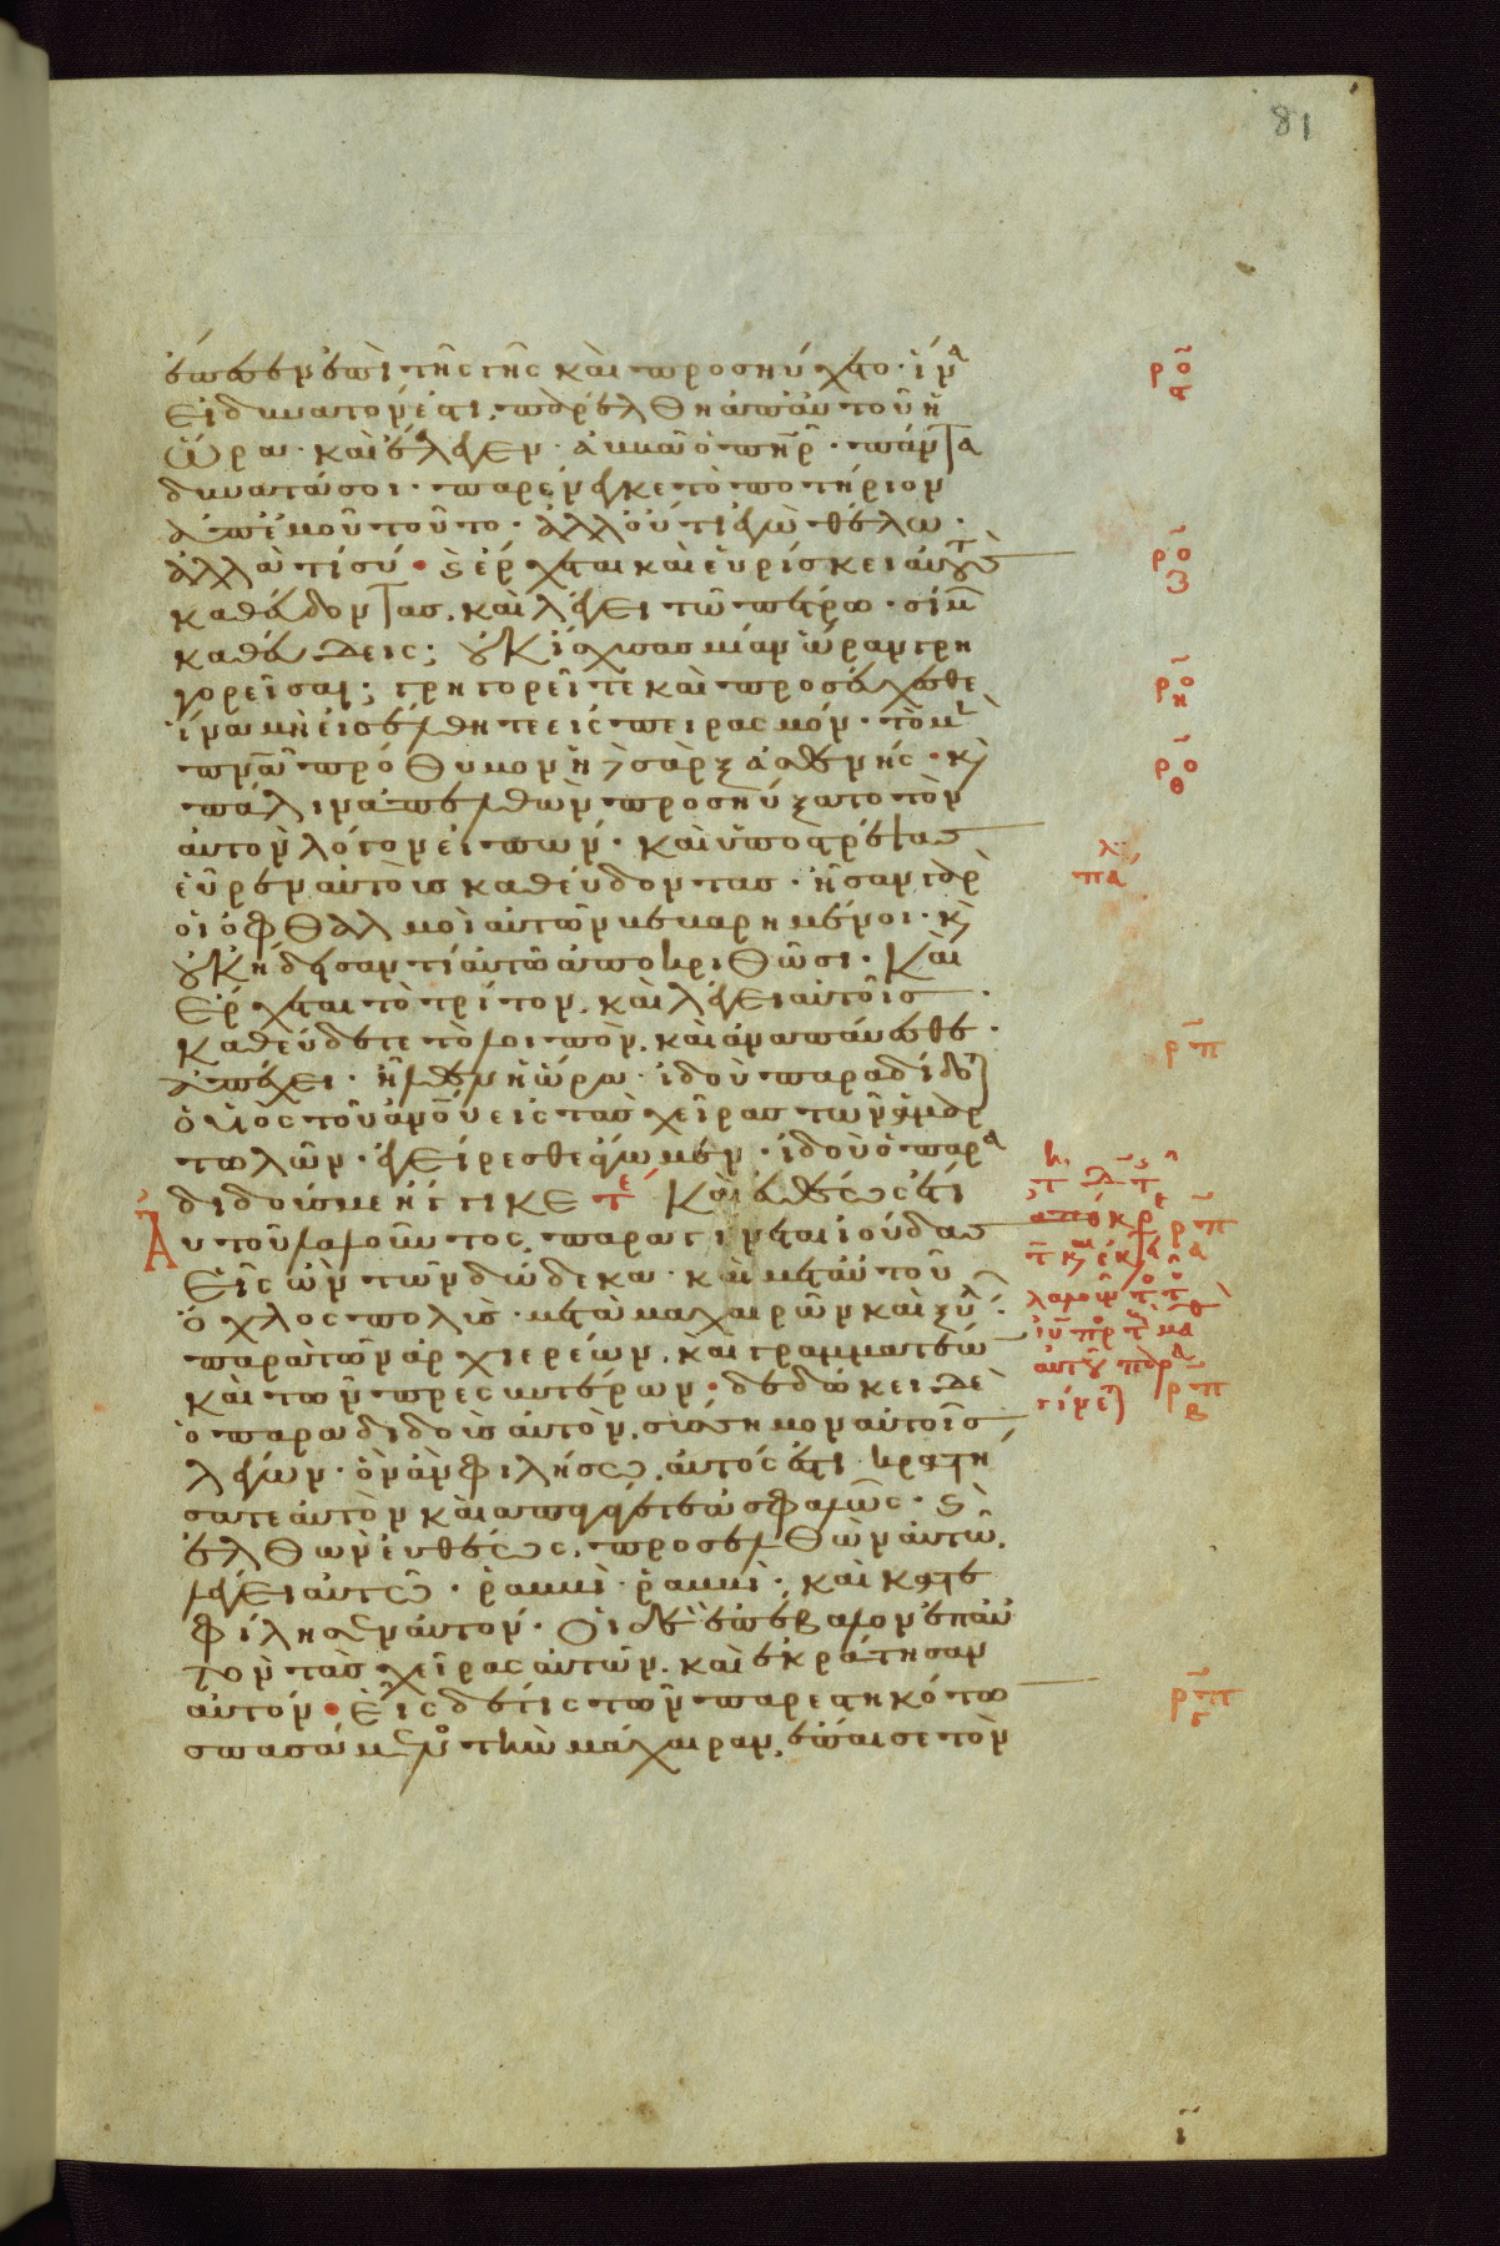 81
ἔπεσεν ἐπὶ τῆς γῆς καὶ προσηύχετο· ἵνα
εἰ δυνατόν ἐστι, παρέλθη ἀπ' αὐτοῦ ἡ
ὥρα· καὶ ἔλεγεν· ἀββᾶ ὁ πηρ· πάντα
δυνατά σοι· παρένεγκε τὸ ποτήριον
ἀπ' ἐμοῦ τοῦτο· ἀλλ' οὐ τί ἐγὼ θέλω·
ἀλλὰ τί σύ· καὶ ἔρχεται καὶ εὑρίσκει αὐτοὺς
καθεύδοντας, καὶ λέγει τῶ πέτρω· σίμων
καθεύδεις; οὐκ ἴσχυσας μίαν ὥραν γρη
γορεῖσαι; γρηγορεῖτε καὶ προσεύχεσθε
ἵνα μὴ εἰσέλθητε εἰς πειρασμόν· τὸ μὲν
πνα πρόθυμον ἡ δὲ σὰρξ ἀσθενής· καὶ
πάλιν ἀπελθὼν προσηύξατο τὸν
αὐτὸν λόγον εἰπών· καὶ ὑποστρέψας
εὗρεν αὐτοὺς καθεύδοντας· ἦσαν γὰρ
οἱ ὀφθαλμοὶ αὐτῶν βεβαρημένοι· καὶ
οὐκ ἤδεσαν τί αὐτῶ ἀποκριθῶσι· Καὶ
ἔρχεται τὸ τρίτον, καὶ λέγει αὐτοῖς·
καθεύδετε τὸ λοιπὸν, καὶ ἀναπαύεσθε·
ἀπέχει· ἦλθεν ἡ ὥρα· ἰδοὺ παραδίδοται
ὁ υἱὸς τοῦ ἀνου εἰς τὰς χεῖρας τῶν ἁμαρ
τωλῶν· ἐγείρεσθε ἄγωμεν· ἰδοὺ ὁ παρα
διδούς με ἤγγικε Καὶ εὐθέως ἔτι
αὐτοῦ λαλοῦντος, παραγίνεται ἰούδας
εἷς ὢν τῶν δώδεκα· καὶ μετ' αὐτοῦ
ὄχλος πολὺς· μετὰ μαχαιρῶν καὶ ξύλων·
παρὰ τῶν ἀρχιερέων, καὶ γραμματέων
καὶ τῶν πρεσβυτέρων· δεδώκει δὲ
ὁ παραδιδοὺς αὐτὸν, σύσσημον αὐτοῖς
λέγων· ὃν ἂν φιλήσω, αὐτός ἐστι· κρατή
σατε αὐτὸν καὶ ἀπαγάγετε ἀσφαλῶς· καὶ
ἐλθὼν εὐθέως, προσελθὼν αὐτῶ,
λέγει αὐτῶ· ῥαββὶ· ῥαββὶ· καὶ κατε
φίλησεν αὐτον· Οἱ δὲ ἐπέβαλον ἐπ' αὐ
τὸν τὰς χεῖρας αὐτῶν, καὶ ἐκράτησαν
αὐτόν· Εἷς δέ τις τῶν παρεστηκότων
σπασάμενος τὴν μάχαιραν, ἔπαισε τὸν